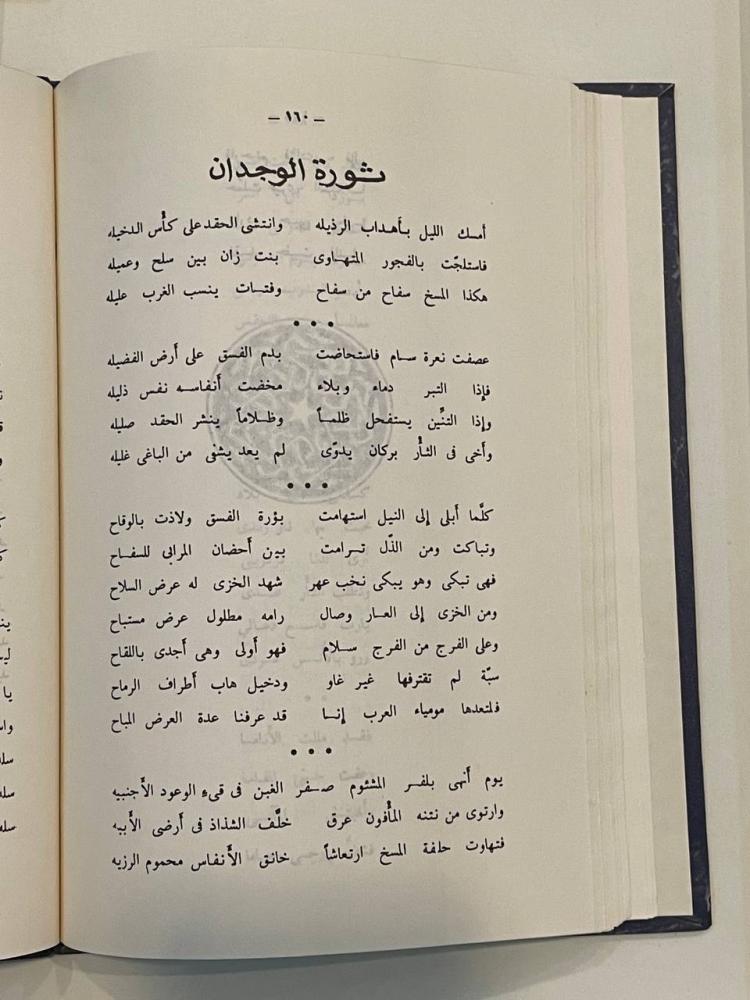 — ١٦٠ —
ثورة الوجدان
أمسك الليل بأهداب الرذيله وانتشى الحقد على كأس الدخيله
فاستلجّت بالفجور المتهاوى بنت زان بين سلح وعميله
هكذا المسخ سفاح من سفاح وفتات ينسب الغرب عليله
• • •
عصفت نعرة سام فاستحاضت بدم الفسق على أرض الفضيله
فإذا التبر دماء وبلاء مخضت أنفاسه نفس ذليله
وإذا التنّين يستفحل ظلماً وظلاماً ينشر الحقد صليله
وأخى فى الثأر بركان يدوّى لم يعد يشفى من الباغى غليله
• • •
كلّما أبلى إلى النيل استهامت بؤرة الفسق ولاذت بالوقاح
وتباكت ومن الذّل ترامت بين أحضان المرابى للسفاح
فهى تبكى وهو يبكى نخب عهر شهد الخزى له عرض السلاح
ومن الخزى إلى العار وصال رامه مطلول عرض مستباح
وعلى الفرج من الفرج سلام فهو أولى وهى أجدى باللقاح
سبّة لم تقترفها غير غاو ودخيل هاب أطراف الرماح
فلمتعدها مومياء العرب إنا قد عرفنا عدة العرض المباح
• • •
يوم أنهى بلفر المشئوم صفر الغبن فى قىء الوعود الأجنبيه
وارتوى من نتنه المأفون عرق خلّف الشذاذ فى أرضى الأبيه
فتهاوت حلفة المسخ ارتعاشاً خانق الأنفاس محموم الرزيه